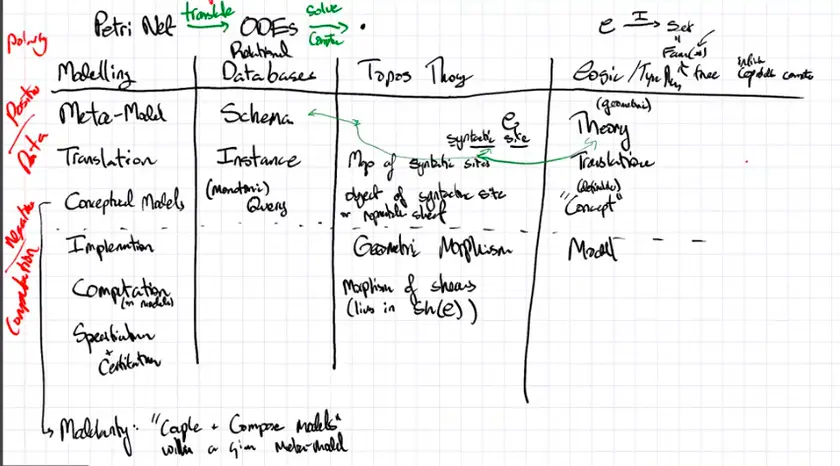 Petri Net translate ODEs solve
e I Set
Relational
Fam(*) free
Modelling Databases Topos Theory Logic / Type
(geometric)
Meta-Model Schema e Theory
syntactic site
Translation Instance Map of syntactic sites Translation
Conceptual Models (monotonic) Query object of syntactic site (definable) "Concept"
or representable sheaf
Implementation Geometric Morphism Model
Computation Morphism of sheaves
(in models) (lives in Sh(e))
Specification
+ Certification
Modularity: "Couple + Compose Models"
within a given Meta-model
Polarity
Positive / Data
Negative / Computation